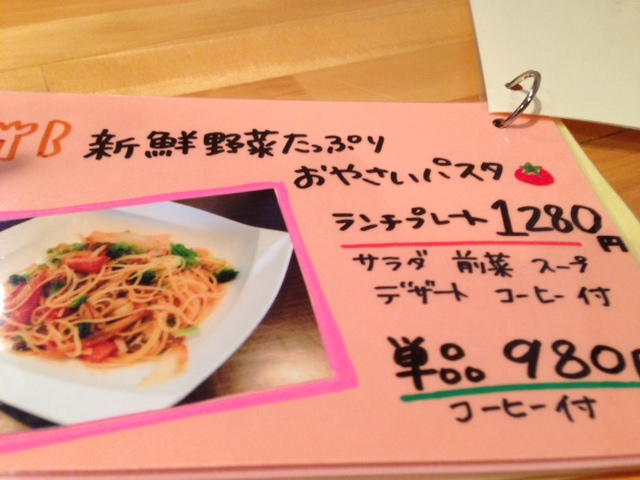 新鮮野菜たっぷり
おやさいパスタ
ランチプレート 1280円
サラダ 前菜 スープ
デザート コーヒー付
単品 980円
コーヒー付